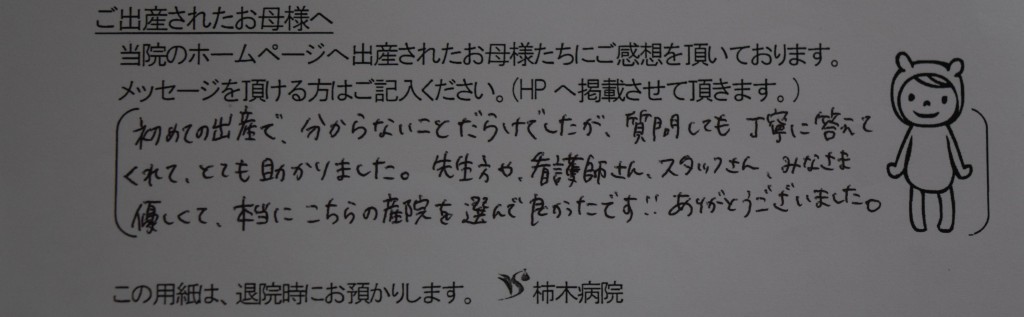 ご出産されたお母様へ
当院のホームページへ出産されたお母様たちにご感想を頂いております。
メッセージを頂ける方はご記入ください。(HPへ掲載させて頂きます。)
初めての出産で、分からないことだらけでしたが、質問しても丁寧に答えて
くれて、とても助かりました。先生方や、看護師さん、スタッフさん、みなさま
優しくて、本当にこちらの産院を選んで良かったです!!ありがとうございました。
この用紙は、退院時にお預かりします。 柿木病院